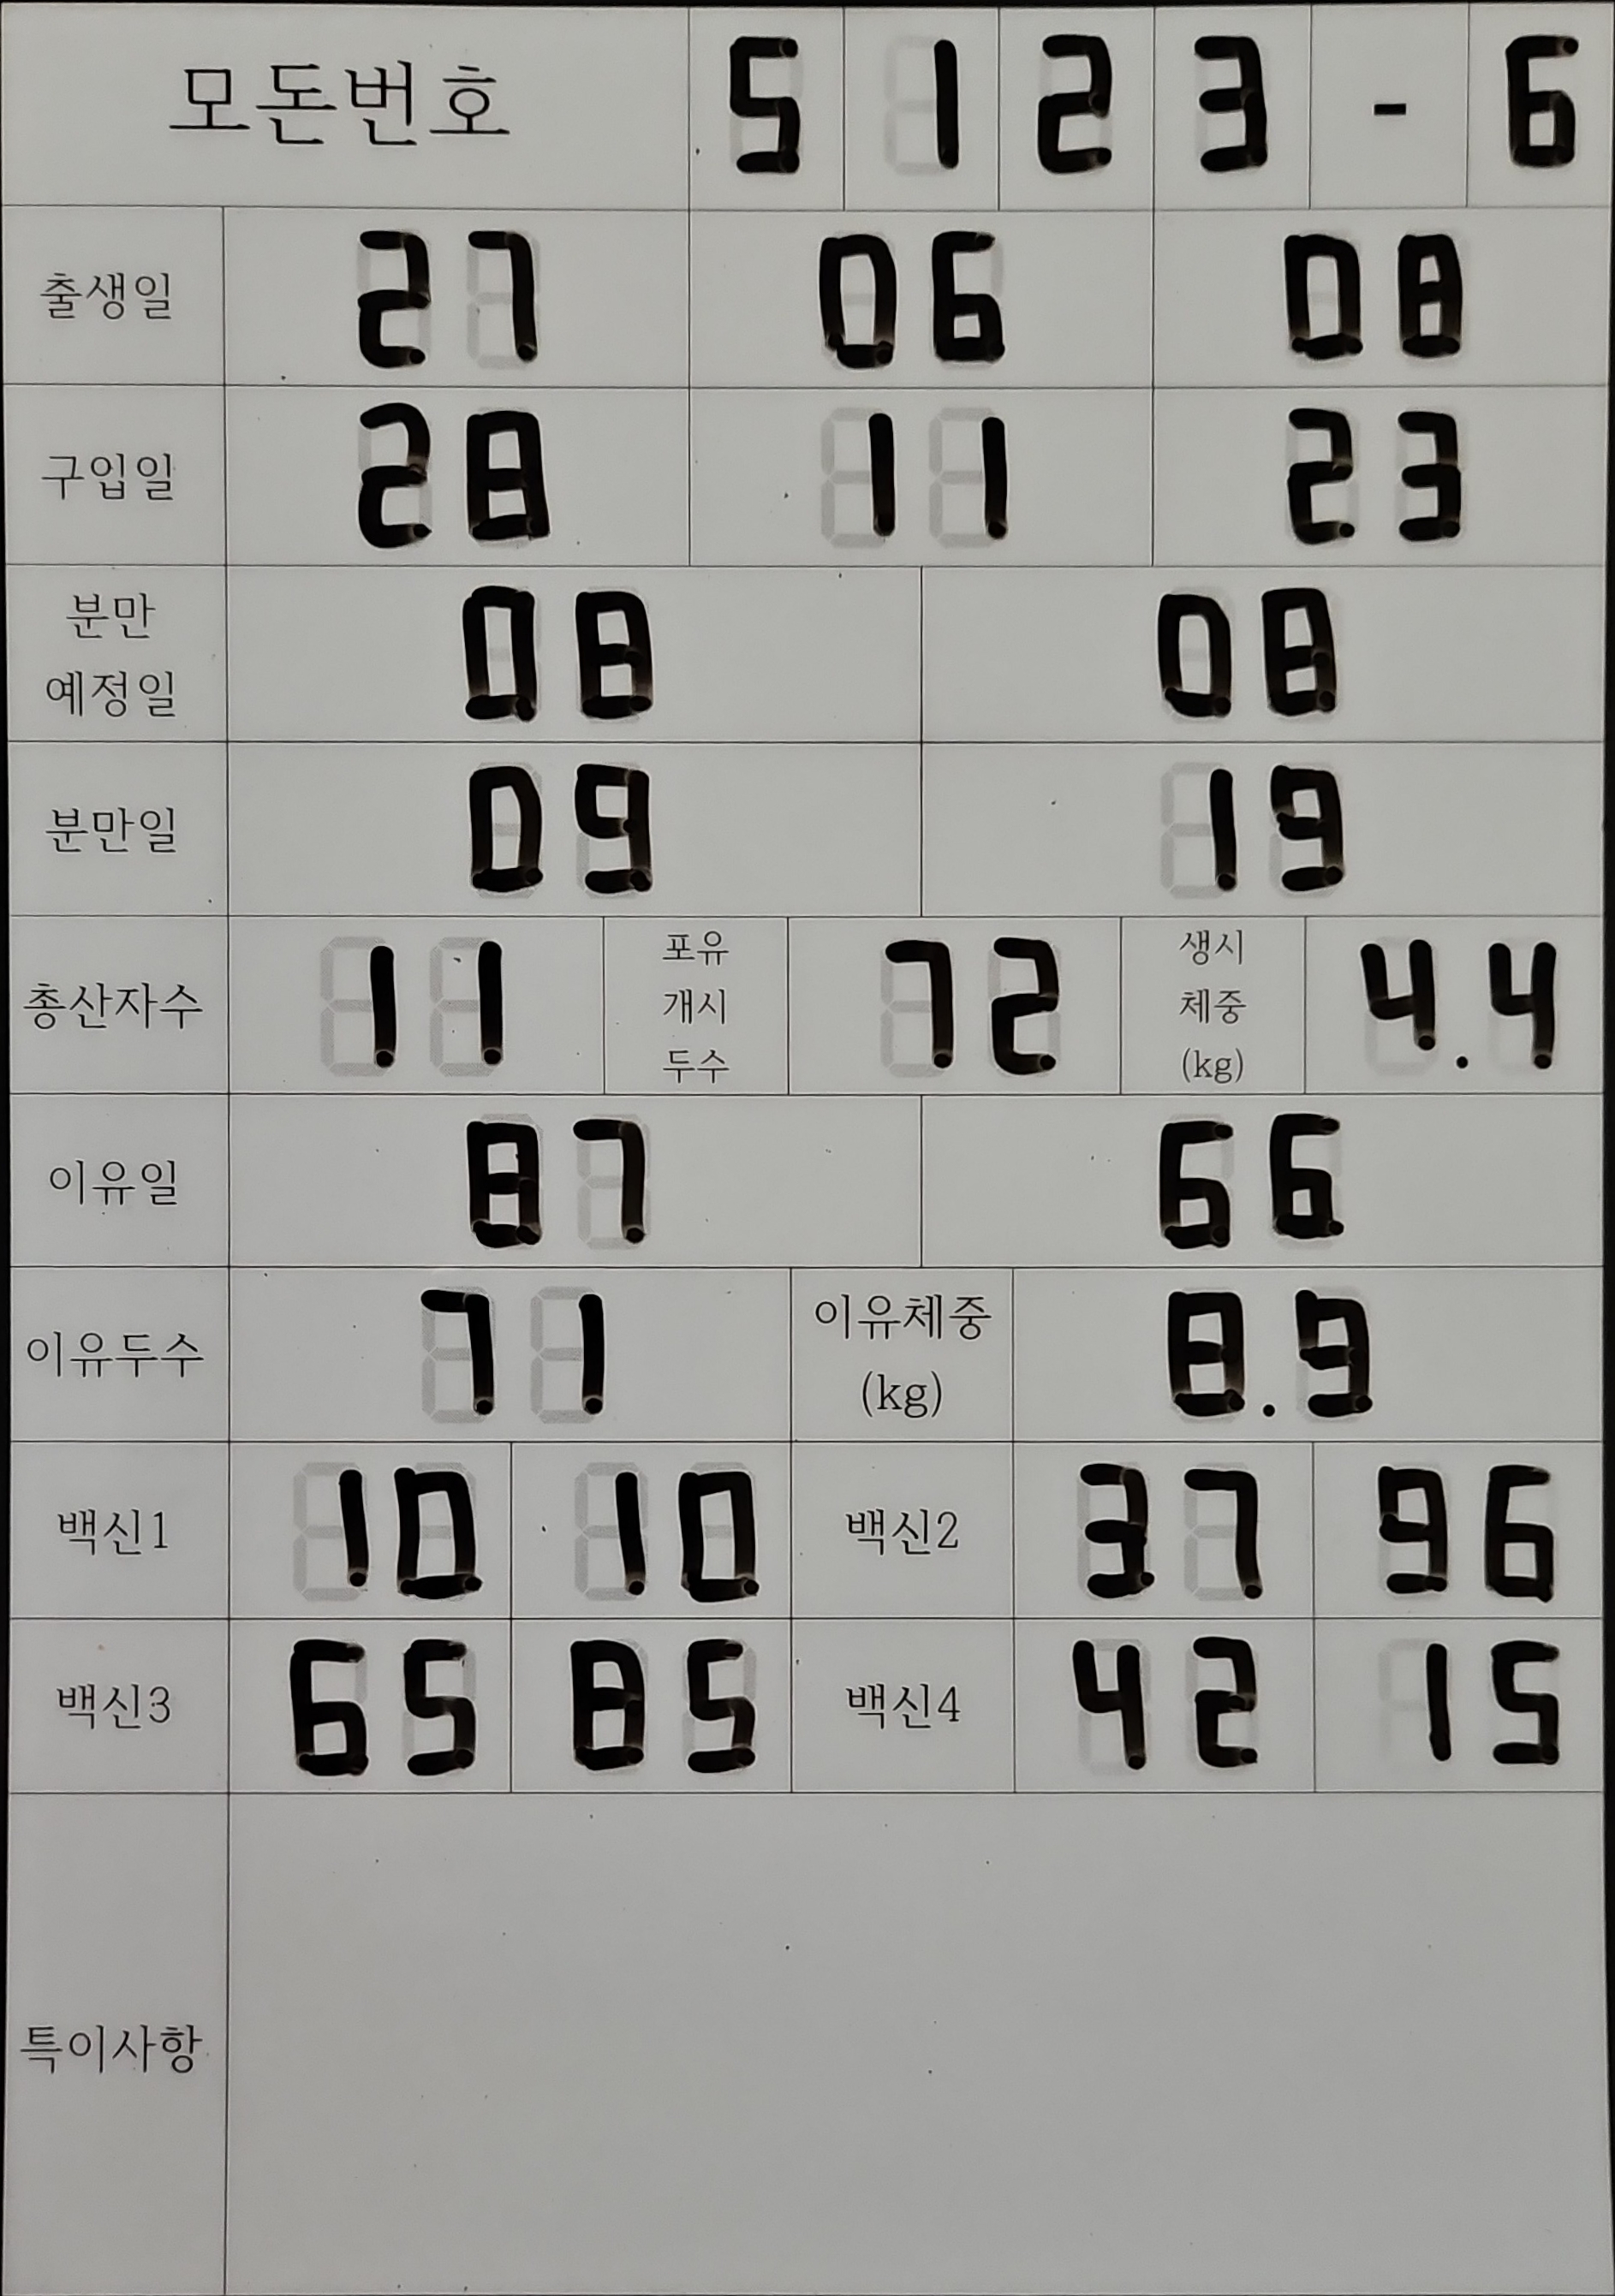 모돈번호 5 1 2 3 - 6
출생일 27 06 08
구입일 28 11 23
분만
예정일 08 08
분만일 09 19
총산자수 11 포유
개시
두수 72 생시
체중
(kg) 4.4
이유일 87 66
이유두수 71 이유체중
(kg) 8.9
백신1 10 10 백신2 37 96
백신3 65 85 백신4 42 15
특이사항